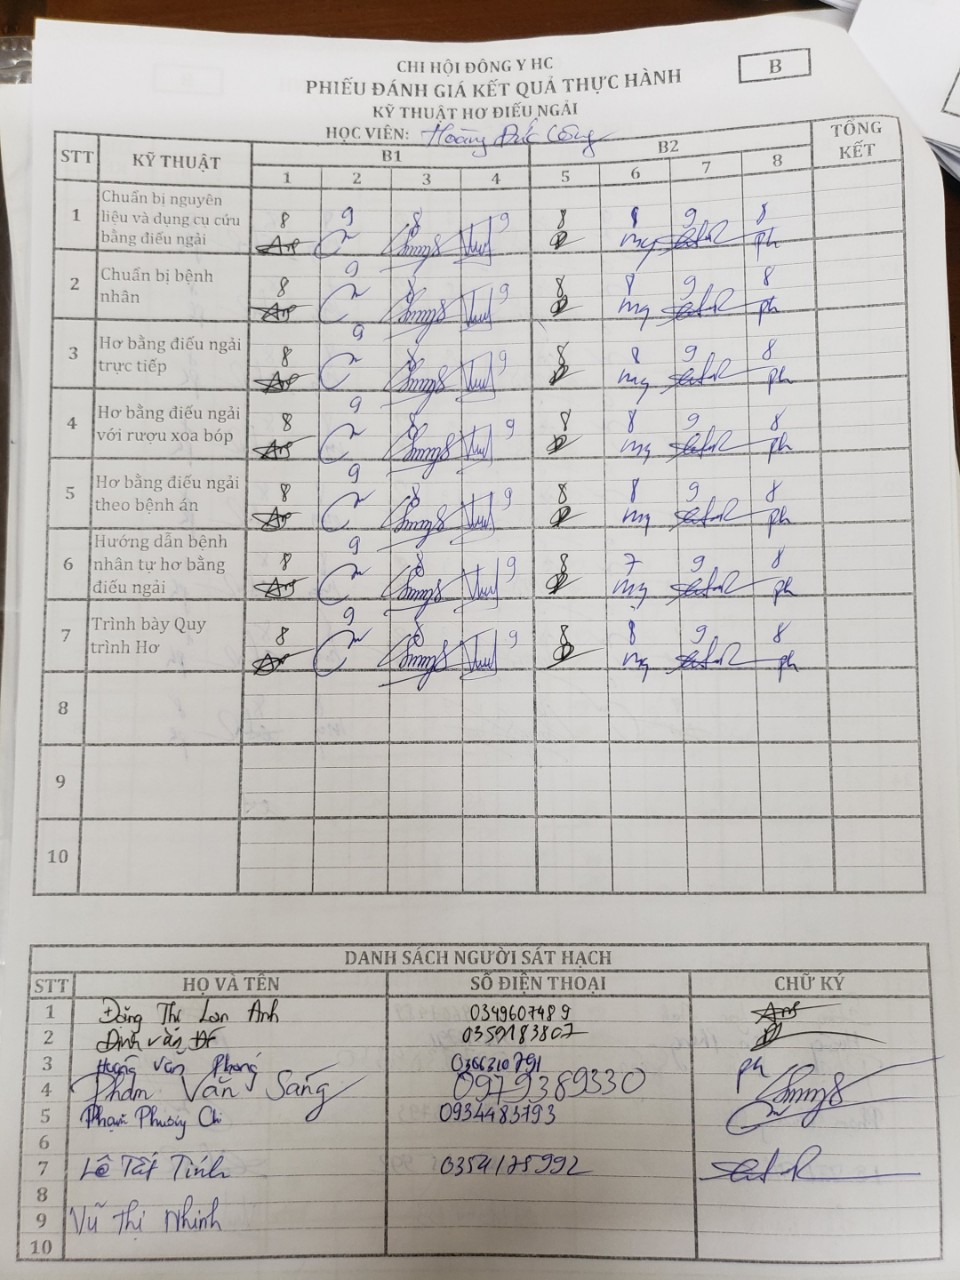 CHI HỘI ĐÔNG Y HC
B
PHIẾU ĐÁNH GIÁ KẾT QUẢ THỰC HÀNH
KỸ THUẬT HƠ ĐIẾU NGẢI
HỌC VIÊN: Hoàng Đức Công
STT KỸ THUẬT B1 B2 TỔNG KẾT
1 2 3 4 5 6 7 8
1 Chuẩn bị nguyên liệu và dụng cụ cứu bằng điếu ngải 8 9 8 9 8 8 9 8
2 Chuẩn bị bệnh nhân 8 9 8 9 8 8 9 8
3 Hơ bằng điếu ngải trực tiếp 8 9 8 9 8 8 9 8
4 Hơ bằng điếu ngải với rượu xoa bóp 8 9 8 9 8 8 9 8
5 Hơ bằng điếu ngải theo bệnh án 8 9 8 9 8 8 9 8
6 Hướng dẫn bệnh nhân tự hơ bằng điếu ngải 8 9 8 9 8 7 9 8
7 Trình bày Quy trình Hơ 8 9 8 9 8 8 9 8
8
9
10
DANH SÁCH NGƯỜI SÁT HẠCH
STT HỌ VÀ TÊN SỐ ĐIỆN THOẠI CHỮ KÝ
1 Đặng Thị Lan Anh 0349607489
2 Đinh Văn 0359183807
3 Văn Phong 0366310791 ph
4 Phạm Văn Sang 0979389330
5 Phạm Phương Chi 0934483793
6
7 Lê Tất Tính 0354178992
8
9 Vũ Thị Nhinh
10